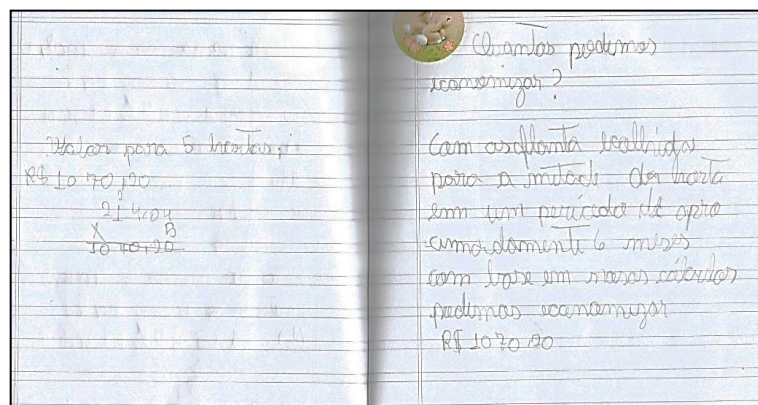 Valor para 5 hortas,
R$ 10 70,20
2
214,04
X 5
10 70,20
Quantos podemos
economizar?
Com as planta escolhida
para a metade da horta
em um período de apro
cimadamente 6 meses
com base em nosos cálculos
podemos economizar
R$ 1070,20